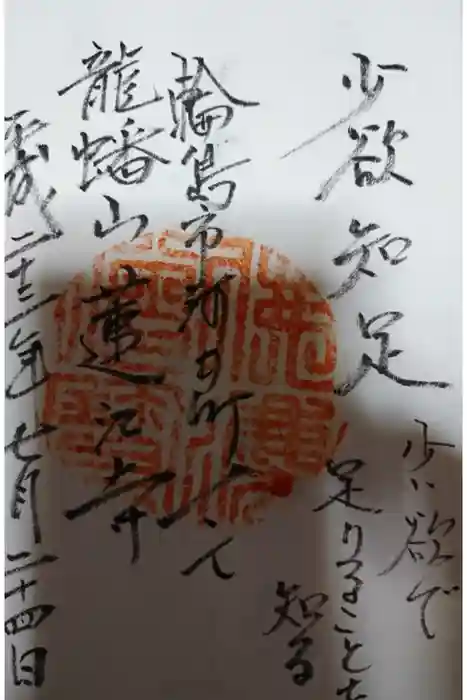 少欲知足
少い欲で
足りることを
知る
輪島市河井町
龍蟠山蓮江寺
平成二十三年七月二十四日